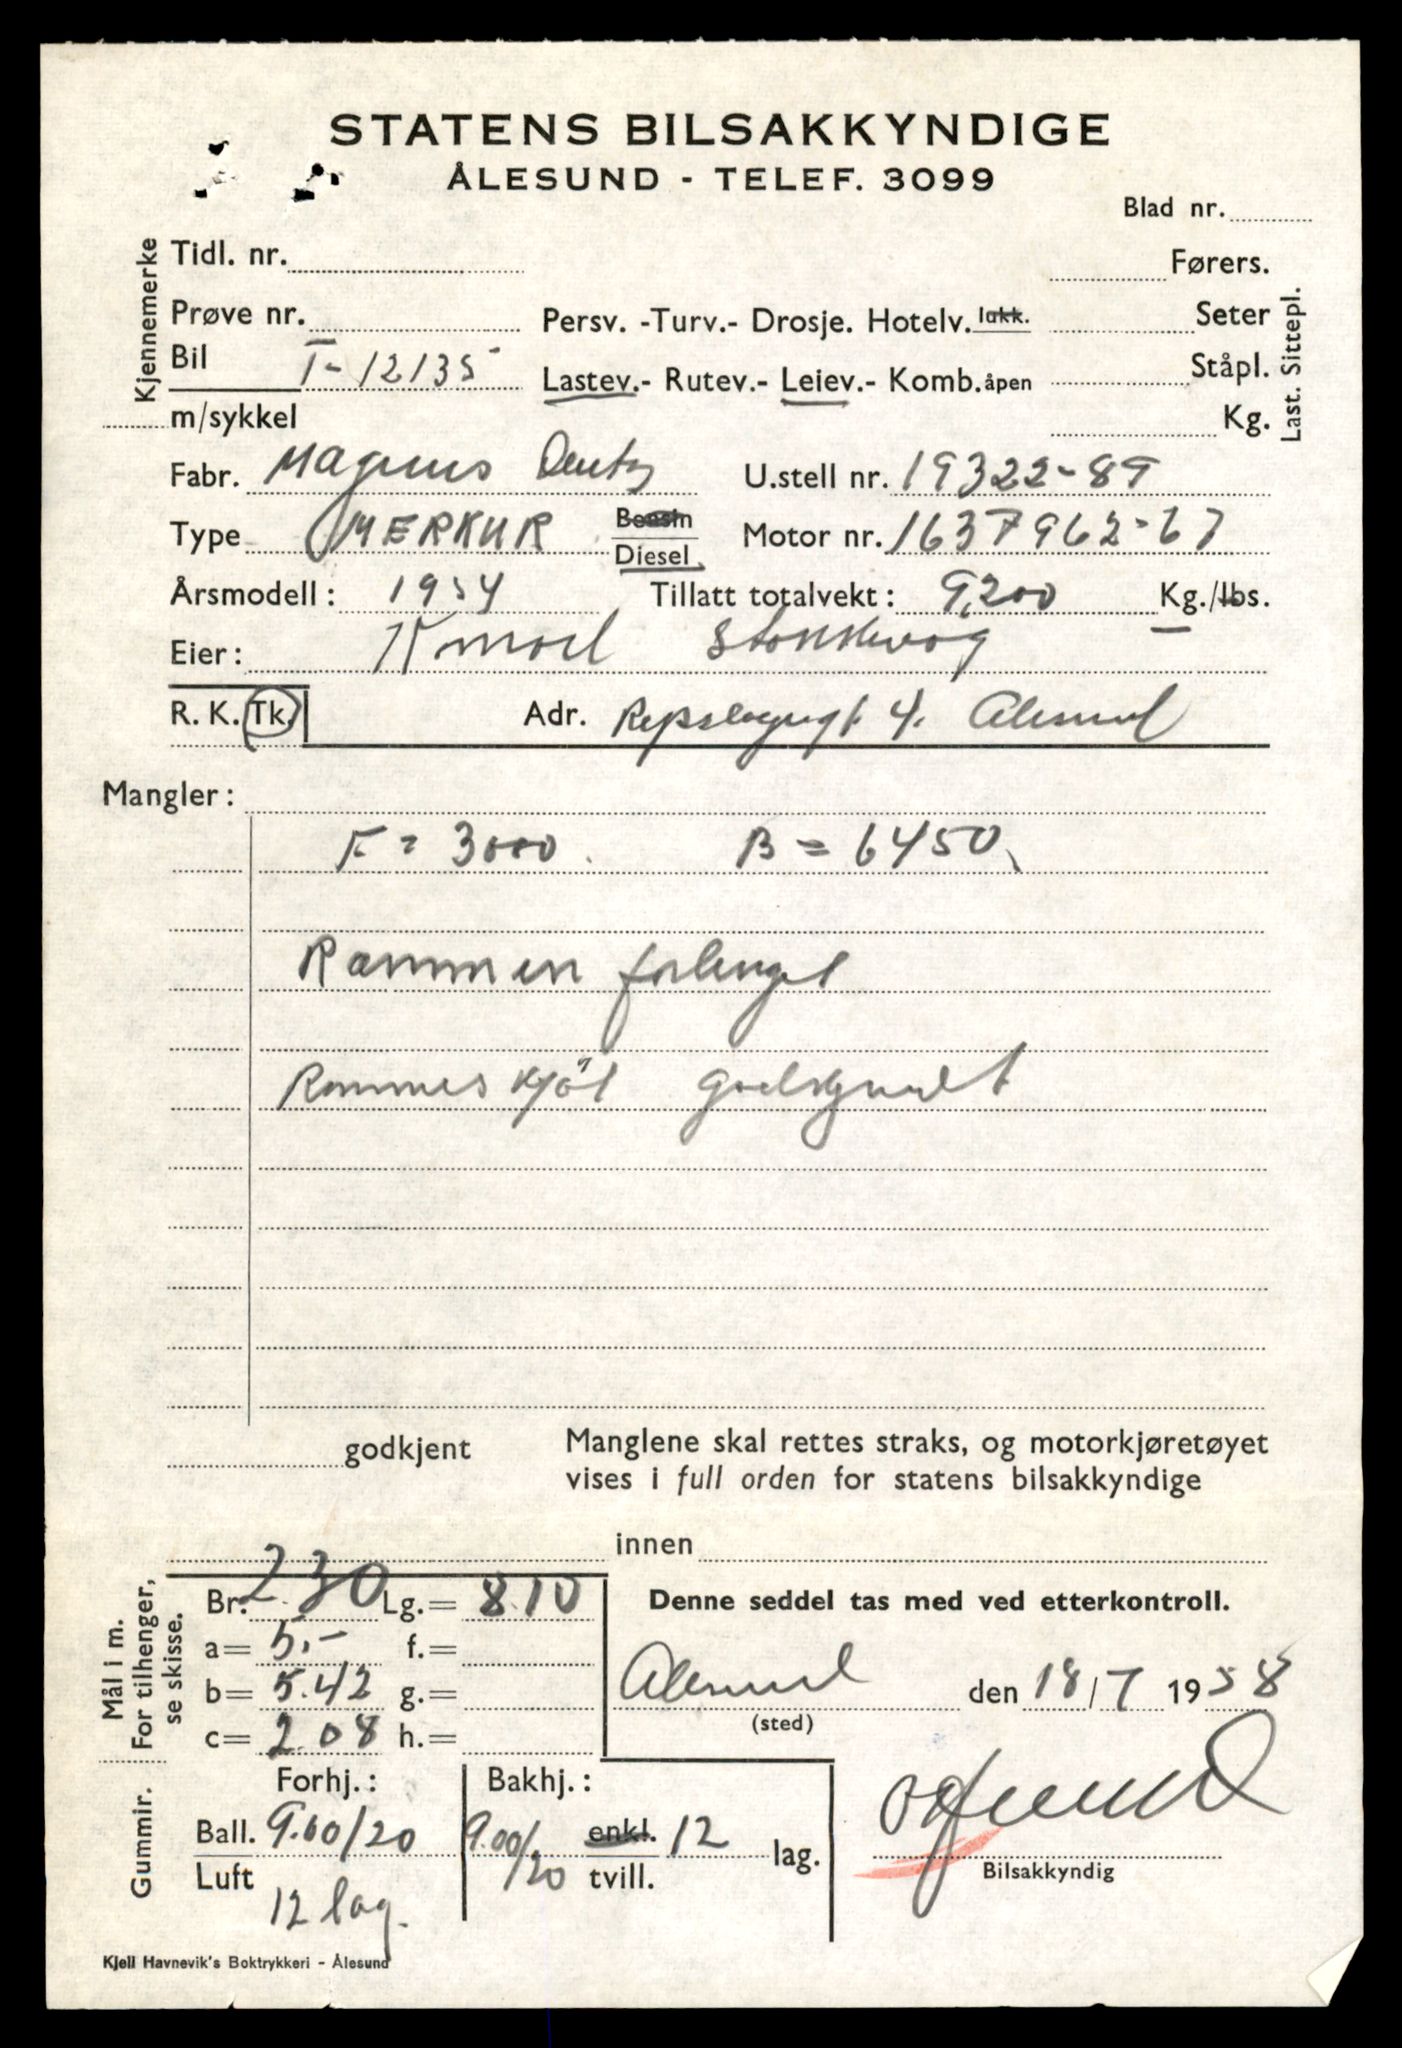 STATENS BILSAKKYNDIGE
ÅLESUND - TELEF. 3099
Blad nr.
Kjennemerke
Tidl. nr.
Førers.
Prøve nr.
Persv. -Turv.- Drosje. Hotelv. lukk.
Seter
Bil T-12135
Lastev.- Rutev.- Leiev.- Komb. åpen
Ståpl.
m/sykkel
Kg.
Last. Sittepl.
Fabr. Magirus Deutz U.stell nr. 19322-89
Type MERKUR Bensin Diesel Motor nr. 1637962-67
Årsmodell: 1954 Tillatt totalvekt: 9,200 Kg./lbs.
Eier: Stokkevåg
R. K. Tk. Adr. 4. Ålesund
Mangler:
F = 3000. B = 6450
Rammen forlenget
godkjendt
godkjent
Manglene skal rettes straks, og motorkjøretøyet
vises i full orden for statens bilsakkyndige
innen
Mål i m.
For tilhenger,
se skisse.
Br. 230 Lg.= 8.10
a= 5.- f.=
b= 5.42 g.=
c= 2.08 h.=
Denne seddel tas med ved etterkontroll.
Ålesund den 18/7 1958
(sted)
Gummir.
Forhj.: Bakhj.:
Ball. 9.00/20 9.00/20 enkl. 12 lag.
Luft tvill.
12 lag.
Bilsakkyndig
Kjell Havnevik's Boktrykkeri - Ålesund